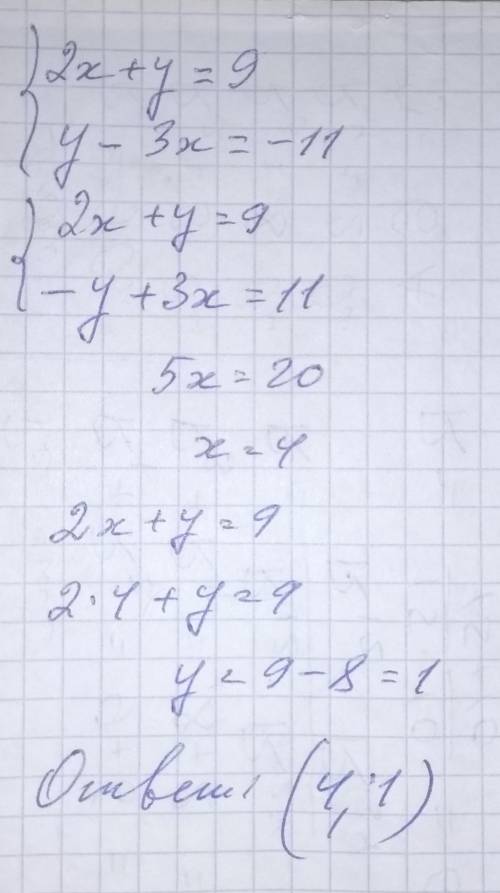 2x + y = 9
y - 3x = -11
2x + y = 9
-y + 3x = 11
5x = 20
x = 4
2x + y = 9
2·4 + y = 9
y = 9 - 8 = 1
Ответ: (4; 1)